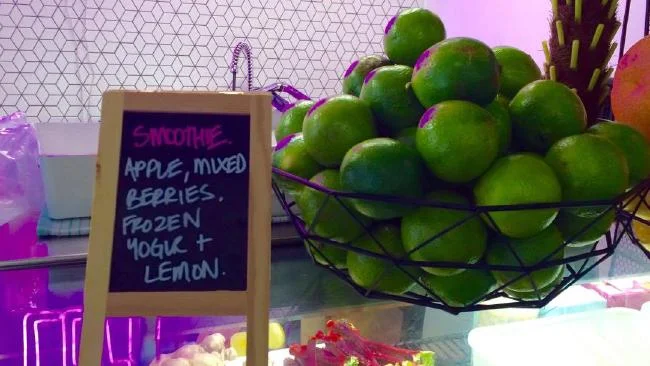 SMOOTHIE.
APPLE, MIXED
BERRIES.
FROZEN
YOGUR +
LEMON.